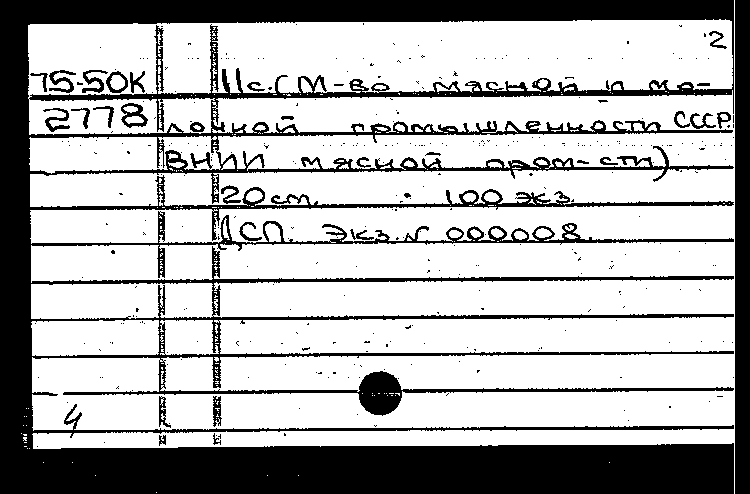 2
75-50К 11с. (М-во мясной и мо-
2778 лочной промышленности СССР.
ВНИИ мясной пром-сти)
20 см. 100 экз.
ДСП. Экз. № 000008.
4